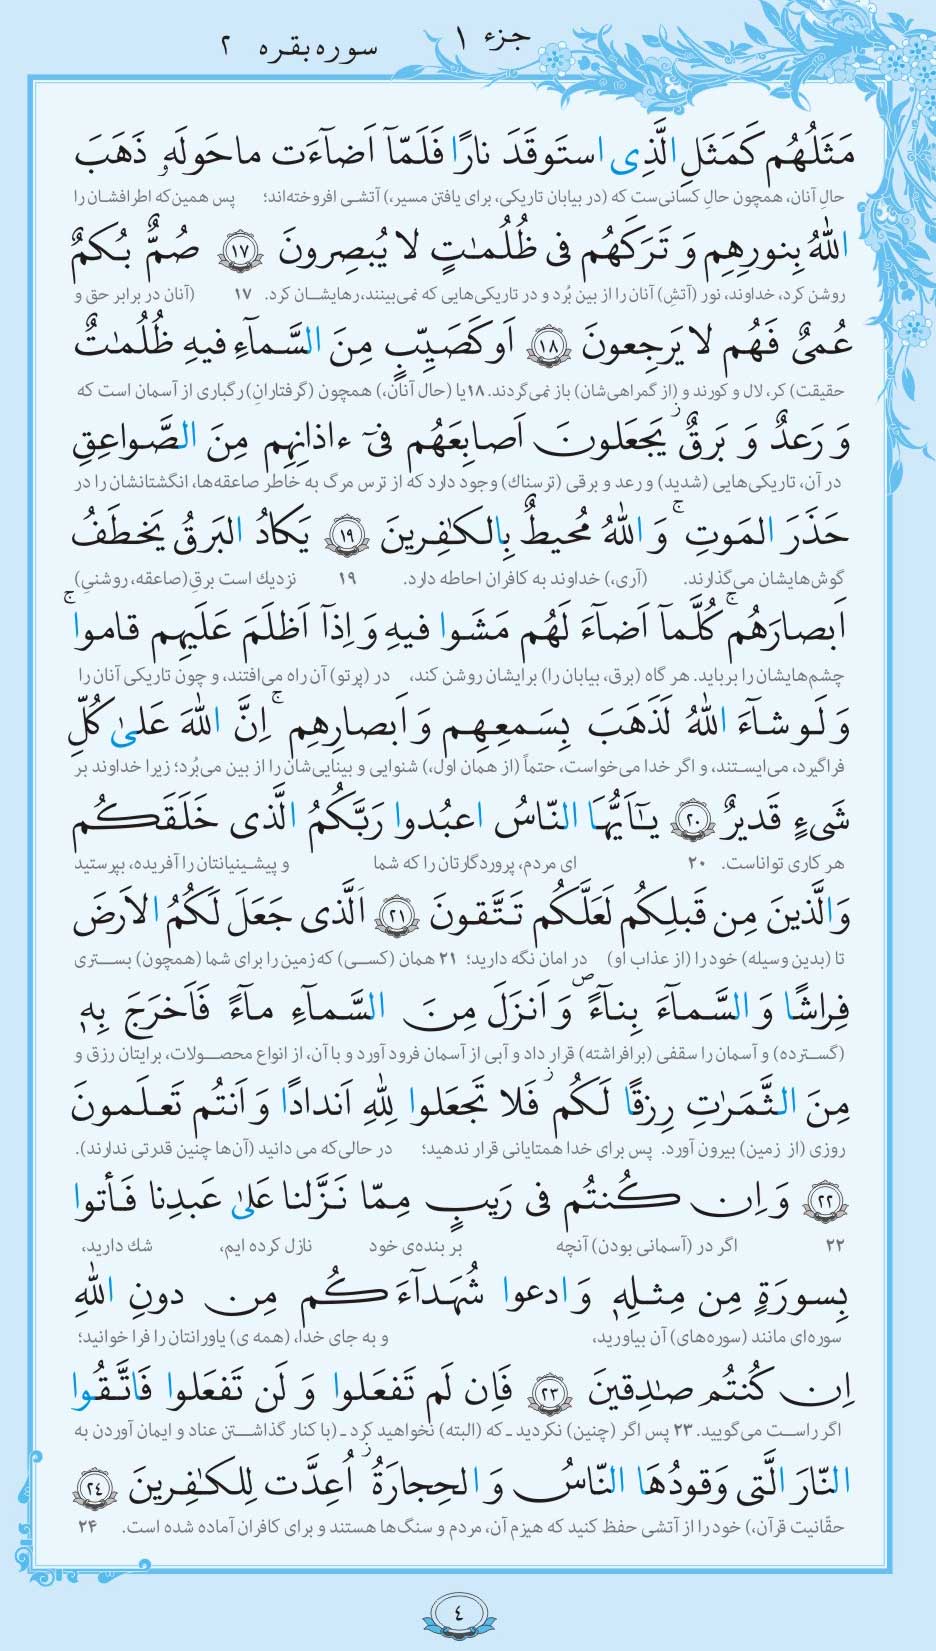 جزء ۱ سوره بقره ۲
مَثَلُهُم كَمَثَلِ الَّذِی استَوقَدَ نارًا فَلَمّآ اَضآءَت ماحَولَهٗ ذَهَبَ
حالِ آنان، همچون حالِ کسانی‌ست که (در بیابان تاریکی، برای یافتن مسیر،) آتشی افروخته‌اند؛ پس همین‌که اطرافشان را
اللّٰهُ بِنورِهِم وَ تَرَكَهُم فی ظُلُمٰتٍ لا یُبصِرونَ ﴿۱۷﴾ صُمٌّ بُكمٌ
روشن کرد، خداوند، نور (آتشِ) آنان را از بین بُرد و در تاریکی‌هایی که نمی‌بینند، رهایشان کرد. ۱۷ (آنان در برابر حق و
عُمیٌ فَهُم لا یَرجِعونَ ﴿۱۸﴾ اَو كَصَیِّبٍ مِنَ السَّمآءِ فیهِ ظُلُمٰتٌ
حقیقت) کر، لال و کورند و (از گمراهی‌شان) باز نمی‌گردند. ۱۸ یا (حال آنان،) همچون (گرفتارانِ) رگباری از آسمان است که
وَ رَعدٌ وَ بَرقٌ ز یَجعَلونَ اَصابِعَهُم فیٓ ءاذانِهِم مِنَ الصَّواعِقِ
در آن، تاریکی‌هایی (شدید) و رعد و برقی (ترسناك) وجود دارد که از ترس مرگ به خاطر صاعقه‌ها، انگشتانشان را در
حَذَرَ المَوتِ ۚ وَ اللّٰهُ مُحیطٌ بِالكٰفِرینَ ﴿۱۹﴾ یَكادُ البَرقُ یَخطَفُ
گوش‌هایشان می‌گذارند. (آری،) خداوند به کافران احاطه دارد. ۱۹ نزدیك است برقِ(صاعقه، روشنیِ)
اَبصارَهُم ۚ كُلَّمآ اَضآءَ لَهُم مَشَوا فیهِ وَ اِذآ اَظلَمَ عَلَیهِم قاموا ۚ
چشم‌هایشان را برباید. هر گاه (برق، بیابان را) برایشان روشن کند، در (پرتو) آن راه می‌افتند، و چون تاریکی آنان را
وَ لَو شآءَ اللّٰهُ لَذَهَبَ بِسَمعِهِم وَ اَبصارِهِم ۚ اِنَّ اللّٰهَ عَلیٰ كُلِّ
فراگیرد، می‌ایستند، و اگر خدا می‌خواست، حتماً (از همان اول،) شنوایی و بینایی‌شان را از بین می‌بُرد؛ زیرا خداوند بر
شَیءٍ قَدیرٌ ﴿۲۰﴾ یٰٓاَیُّهَا النّاسُ اعبُدوا رَبَّكُمُ الَّذی خَلَقَكُم
هر کاری تواناست. ۲۰ ای مردم، پروردگارتان را که شما و پیشینیانتان را آفریده، بپرستید
وَالَّذینَ مِن قَبلِكُم لَعَلَّكُم تَتَّقونَ ﴿۲۱﴾ اَلَّذی جَعَلَ لَكُمُ الاَرضَ
تا (بدین وسیله) خود را (از عذاب او) در امان نگه دارید؛ ۲۱ همان (کسی) که زمین را برای شما (همچون) بستری
فِراشًا وَ السَّمآءَ بِنآءً ص وَ اَنزَلَ مِنَ السَّمآءِ مآءً فَاَخرَجَ بِهٖ
(گسترده) و آسمان را سقفی (برافراشته) قرار داد و آبی از آسمان فرود آورد و با آن، از انواع محصولات، برایتان رزق و
مِنَ الثَّمَرٰتِ رِزقًا لَكُم ز فَلا تَجعَلوا لِلّٰهِ اَندادًا وَ اَنتُم تَعلَمونَ
روزی (از زمین) بیرون آورد. پس برای خدا همتایانی قرار ندهید؛ در حالی‌که می دانید (آن‌ها چنین قدرتی ندارند).
﴿۲۲﴾ وَ اِن كُنتُم فی رَیبٍ مِمّا نَزَّلنا عَلیٰ عَبدِنا فَأتوا
۲۲ اگر در (آسمانی بودن) آنچه بر بنده‌ی خود نازل کرده ایم، شك دارید،
بِسورَةٍ مِن مِثلِهٖ وَ ادعوا شُهَدآءَكُم مِن دونِ اللّٰهِ
سوره‌ای مانند (سوره‌های) آن بیاورید، و به جای خدا، (همه ی) یاورانتان را فرا خوانید؛
اِن كُنتُم صٰدِقینَ ﴿۲۳﴾ فَاِن لَم تَفعَلوا وَ لَن تَفعَلوا فَاتَّقُوا
اگر راست می‌گویید. ۲۳ پس اگر (چنین) نکردید ـ که (البته) نخواهید کرد ـ (با کنار گذاشتن عناد و ایمان آوردن به
النّارَ الَّتی وَقودُهَا النّاسُ وَ الحِجارَةُ ز اُعِدَّت لِلكٰفِرینَ ﴿۲۴﴾
حقّانیت قرآن،) خود را از آتشی حفظ کنید که هیزم آن، مردم و سنگ‌ها هستند و برای کافران آماده شده است. ۲۴
۴